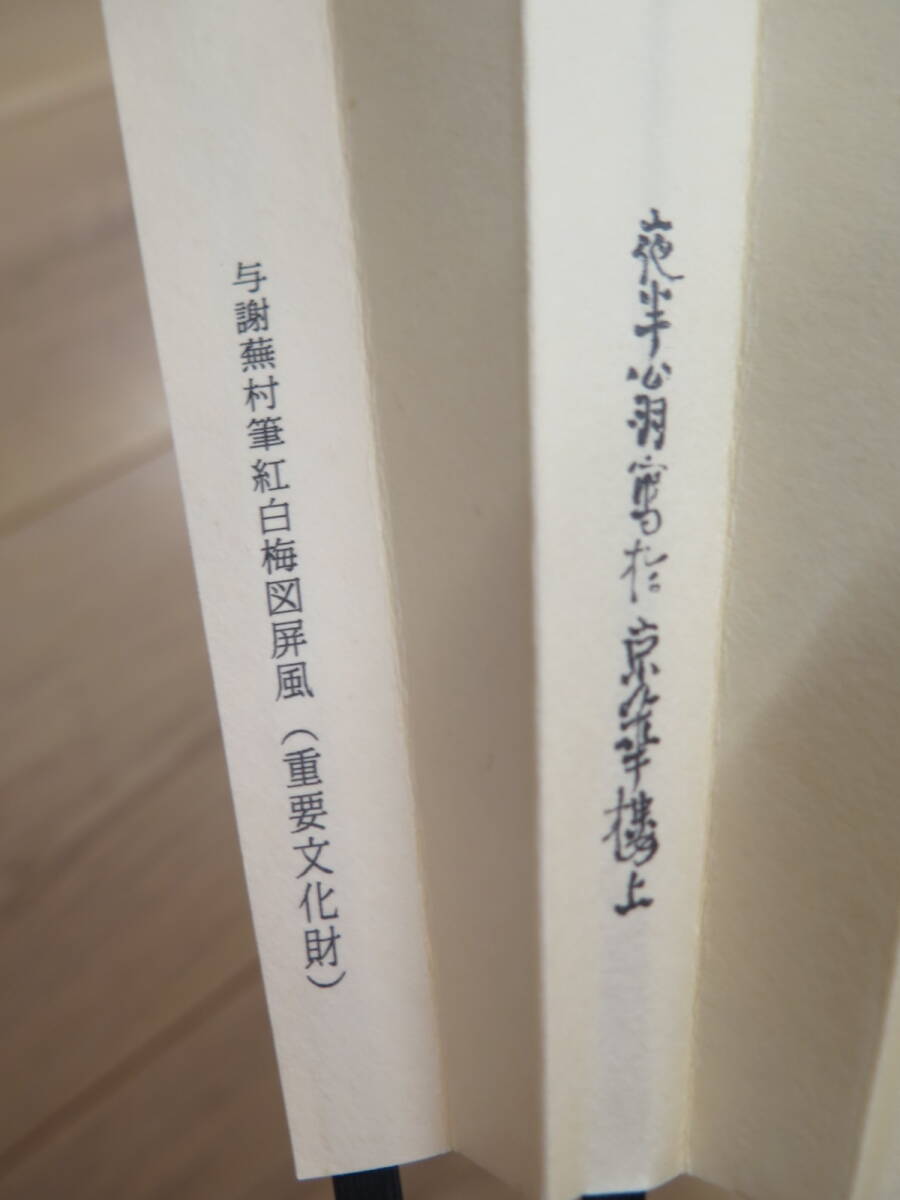 夜半翁寫於京華樓上
与謝蕪村筆紅白梅図屏風（重要文化財）